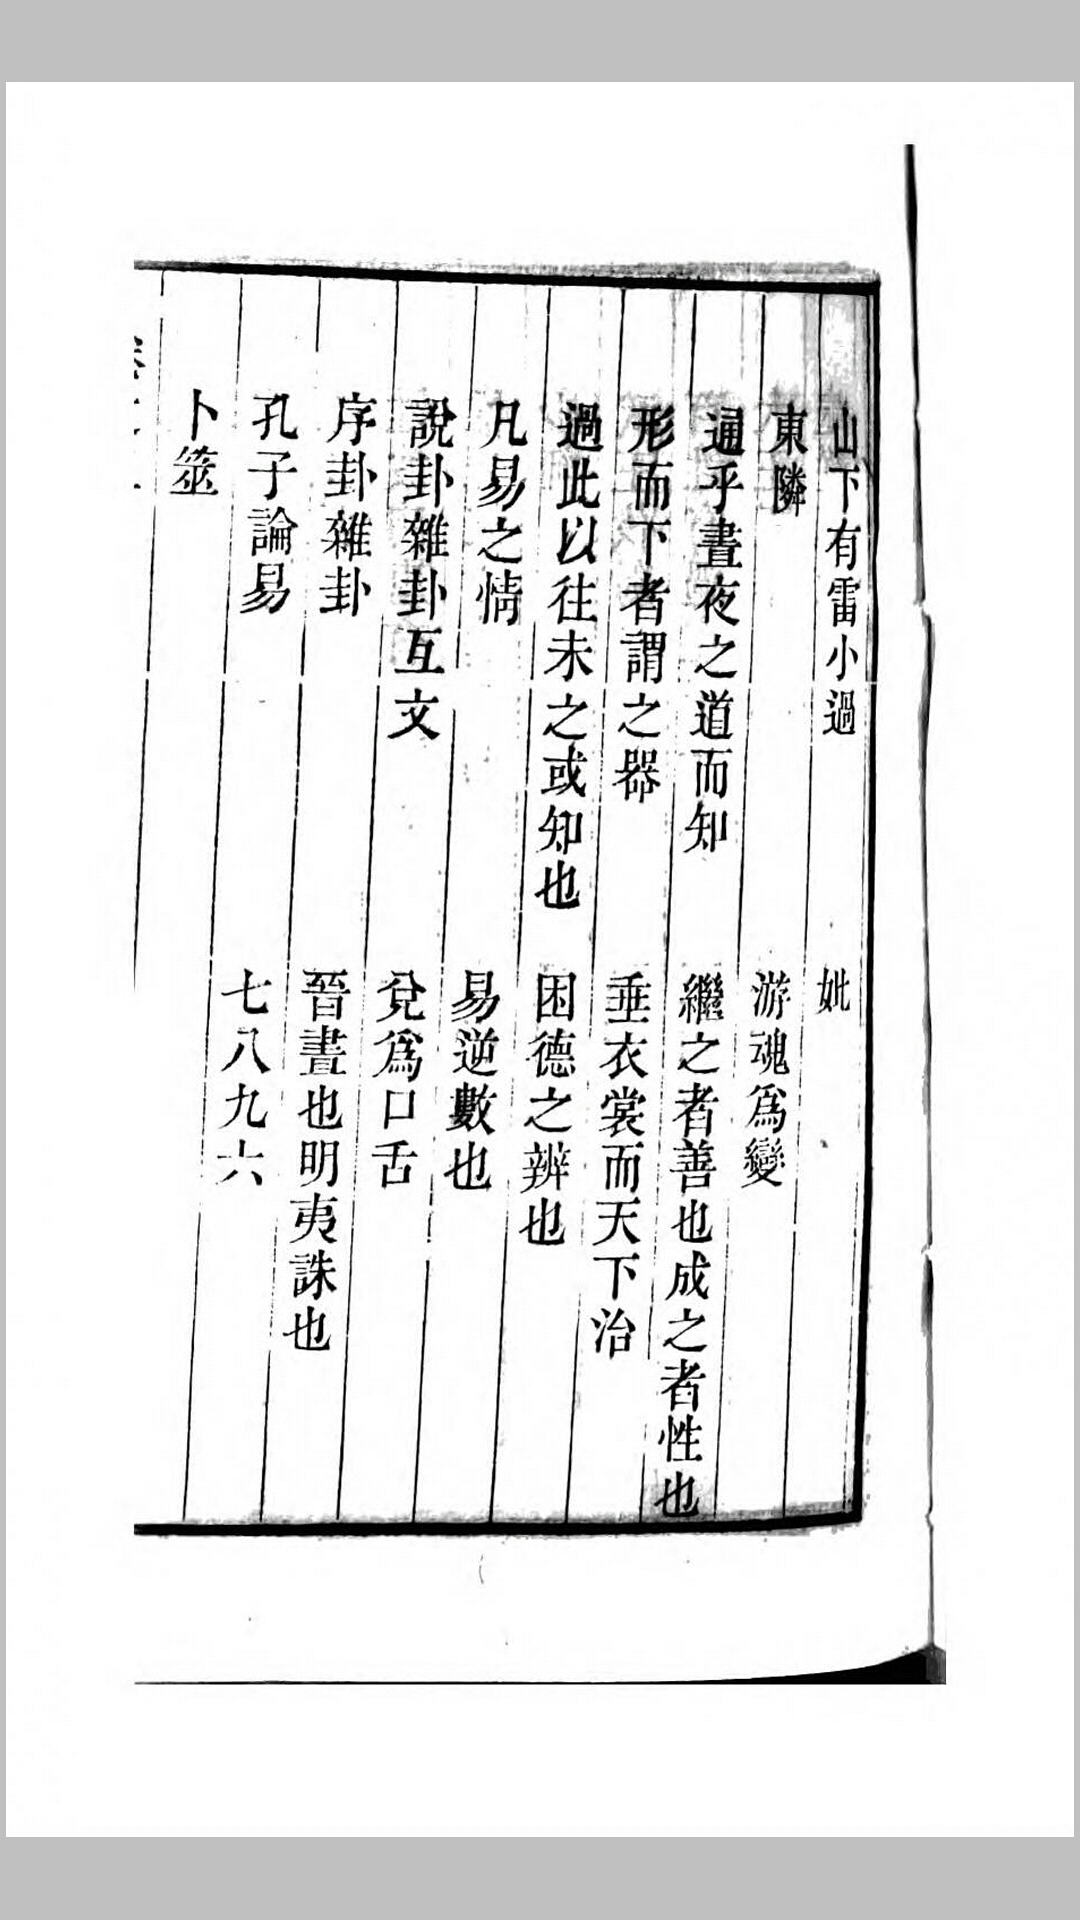 山下有雷小過　妣
東隣　游魂爲變
通乎晝夜之道而知　繼之者善也成之者性也
形而下者謂之器　垂衣裳而天下治
過此以往未之或知也　困德之辨也
凡易之情　易逆數也
說卦雜卦互文　兌爲口舌
序卦雜卦　晉晝也明夷誅也
孔子論易　七八九六
卜筮